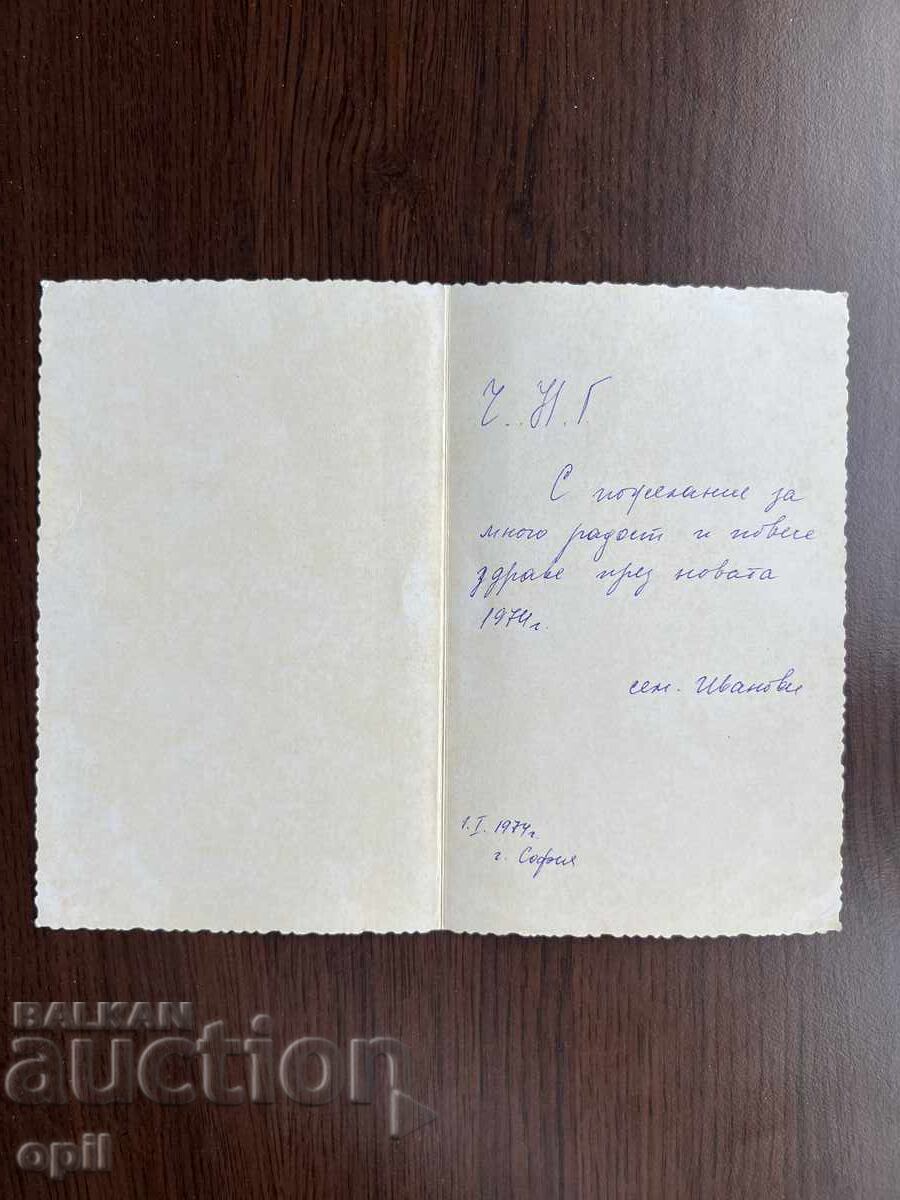 Ч. Н. Г.
С пожелание за
много радост и повече
здраве през новата
1974 г.
сем. Иванови
1. I. 1974 г.
г. София
BALKAN
auction
opil